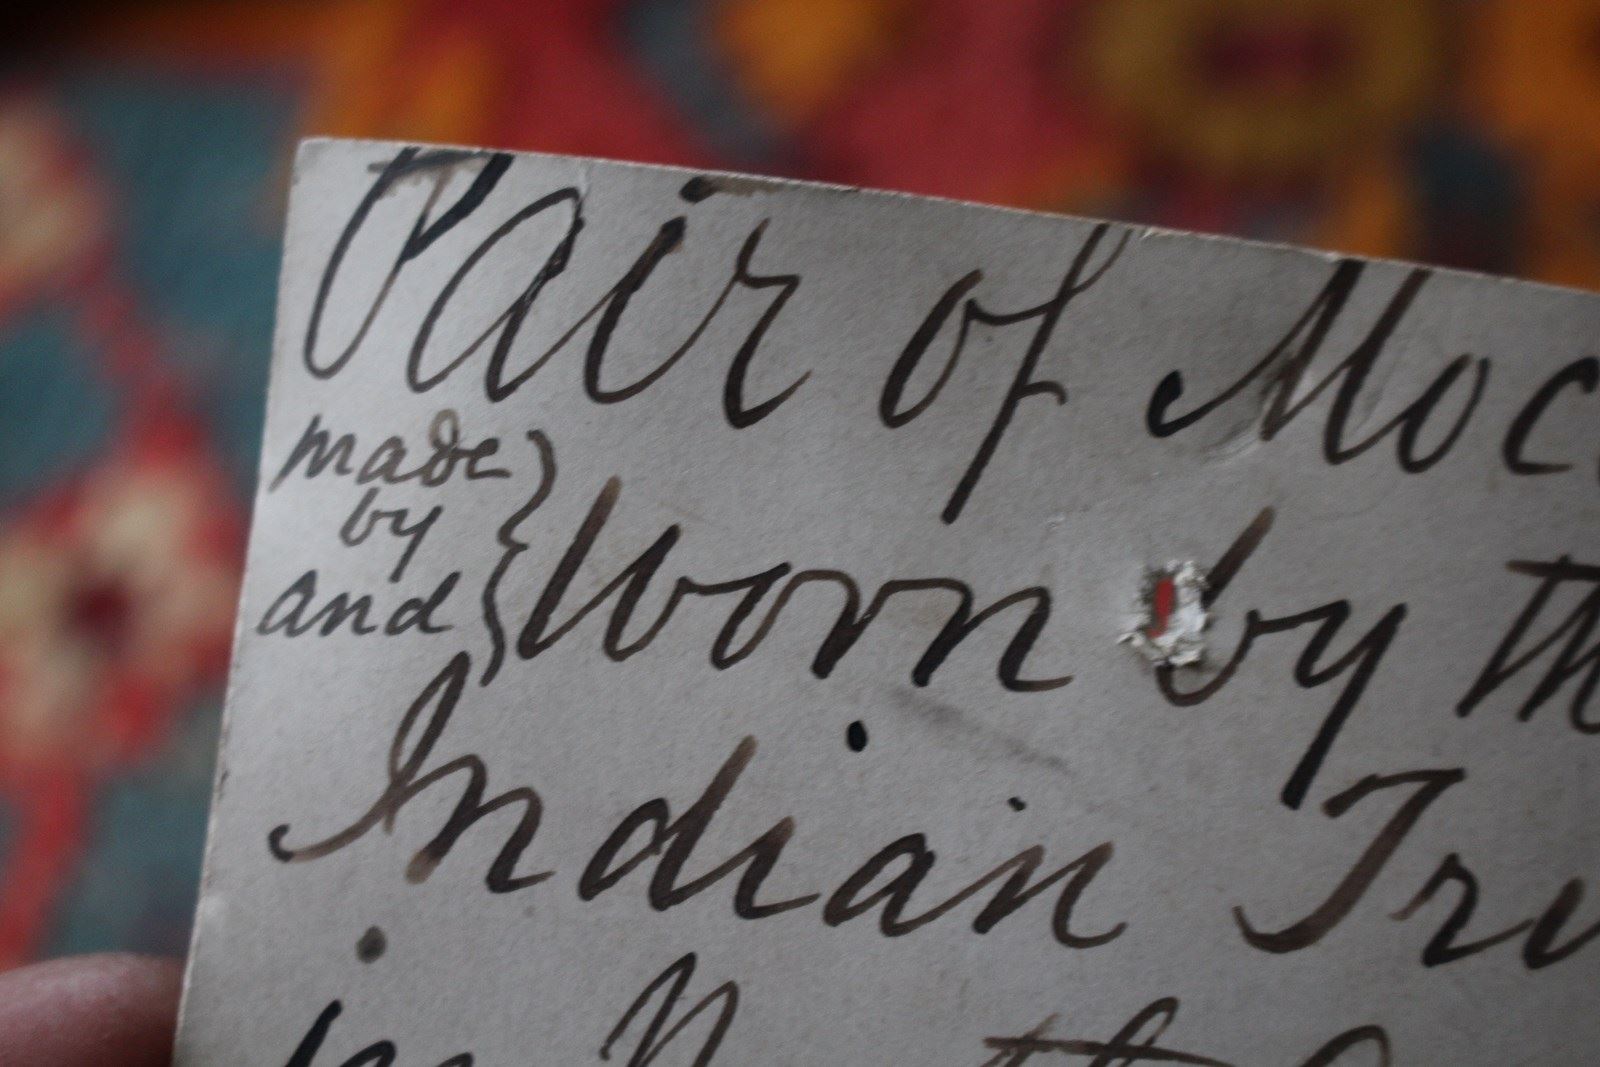 Pair of Moc
made
by
and } Worn by th
Indian Tr
in North